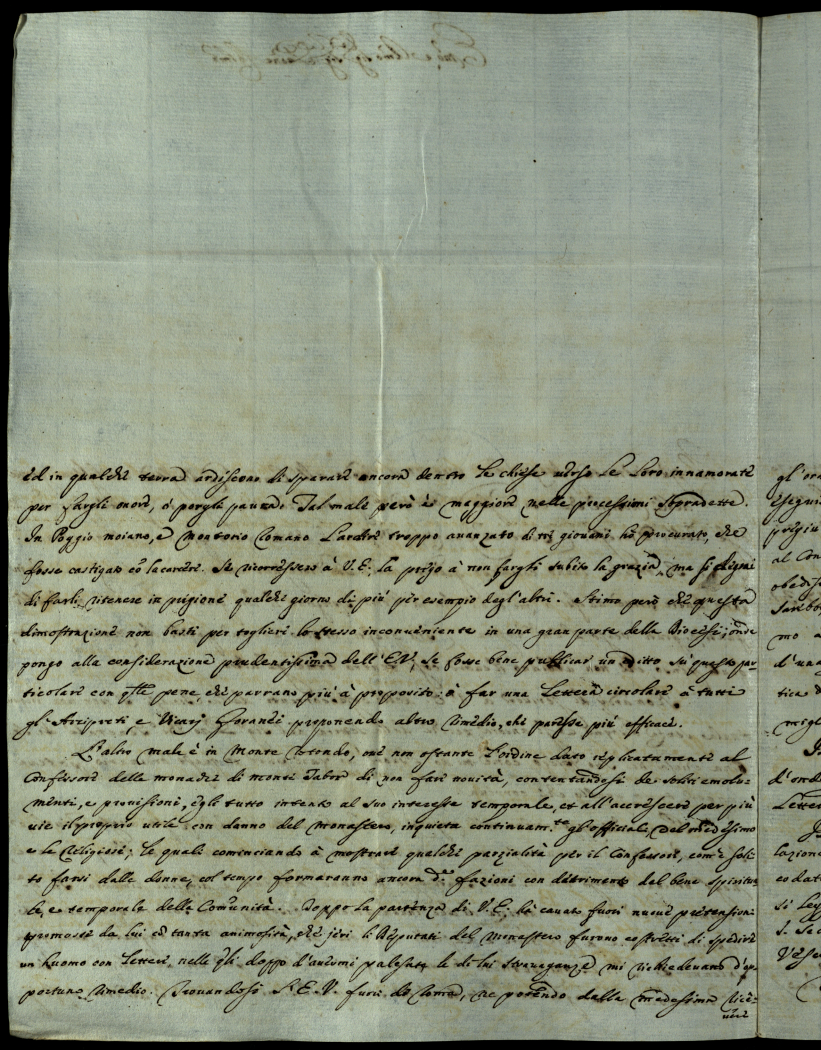 ed in qualche terra ardiscono di sparare ancora dentro le chiese verso le loro innamorate
per fargli onore, ò porgli paura. Tal male però è maggiore nelle processioni sopradette.
In Poggio moiano, e Montorio Romano l'ardire troppo avanzato di tre giovani hà procurato, che
fosse castigato cò la carcere. Se ricorressero à V.E. la prego à non fargli subito la grazia, ma si degni
di farli ritenere in prigione qualche giorno di più per esempio degl'altri. Stimo però che questa
dimostrazione non basti per togliere lo stesso inconveniente in una gran parte della Diocesi; onde
pongo alla considerazione prudentissima dell'E.V., se fosse bene publicar un editto sù questo par
ticolare con quelle pene, che parrano più à proposito: ò far una lettera circolare à tutti
gl'Arcipreti, e Vicarj Foranei proponendo altro rimedio, che paresse più efficace.
L'altro male è in Monte Rotondo, ove non ostante l'ordine dato replicatamente al
Confessore delle monache di monte Tabor di non fare novità, contentandosi de soliti emolu=
menti, e provisioni, egli tutto intento al suo interesse temporale, et all'accrescere per più
vie il proprio utile con danno del Monastero, inquieta continuam.te gl'officiale del medesimo
e le Religiose; le quali cominciando à mostrare qualche parzialità per il Confessore, com'è soli=
to farsi dalle donne, col tempo formaranno ancora fazioni con detrimento del bene spiritua
le, e temporale della Comunità. Doppo la partenza di V.E. hà cavato fuori nuove pretensioni
promosse da lui cò tanta animosità, che jeri li Deputati del Monastero furono costretti di spedire
un huomo con lettere, nelle quali doppo d'avermi palesate le di lui stravaganze mi richiedevano d'op
portuno rimedio. Trovandosi l'E.V. fuori di Roma, ne potendo dalla medesima rice=
vere